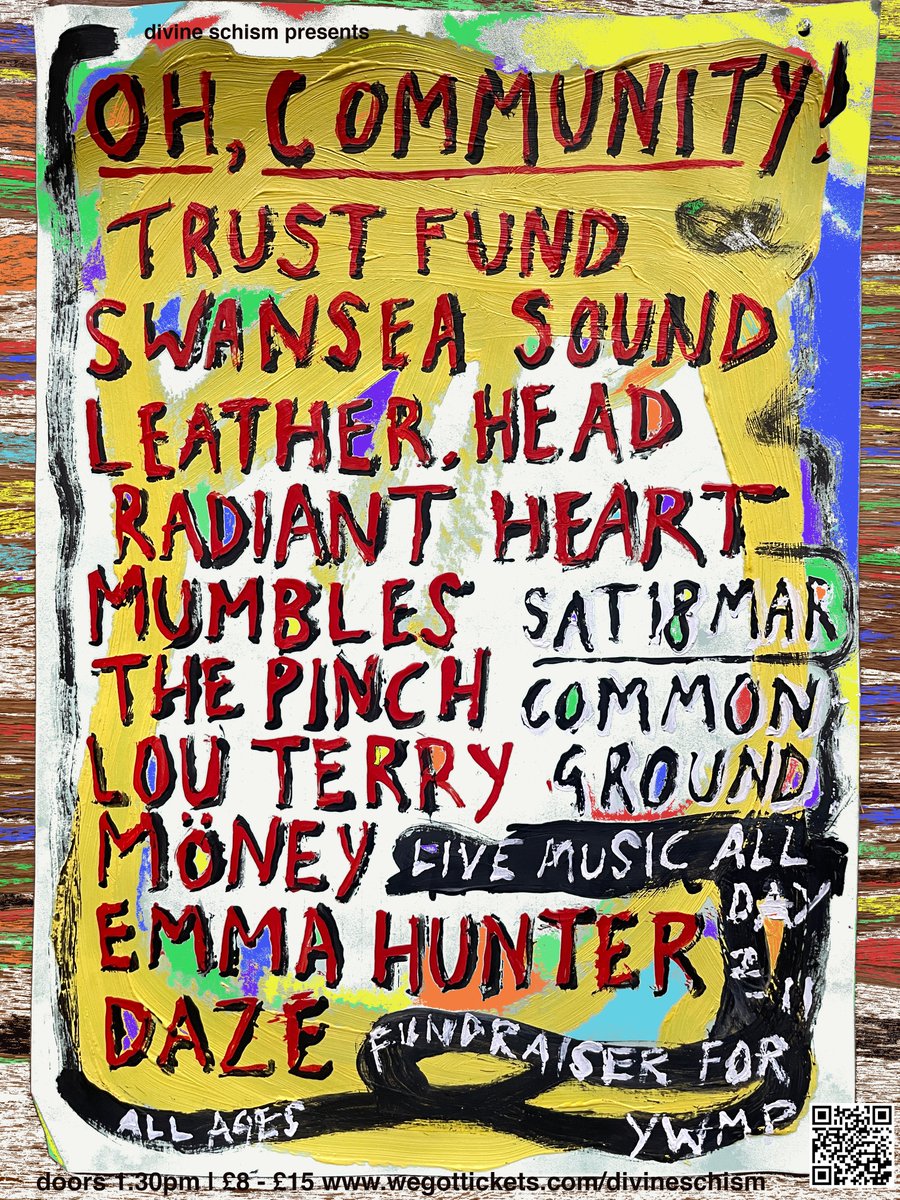 divine schism presents
OH, COMMUNITY!
TRUST FUND
SWANSEA SOUND
LEATHER.HEAD
RADIANT HEART
MUMBLES
SAT 18 MAR
THE PINCH
COMMON
LOU TERRY
GROUND
MÖNEY
LIVE MUSIC ALL
DAY
2-11
EMMA HUNTER
DAZE
FUNDRAISER FOR
YWMP
ALL AGES
doors 1.30pm | £8 - £15 www.wegottickets.com/divineschism